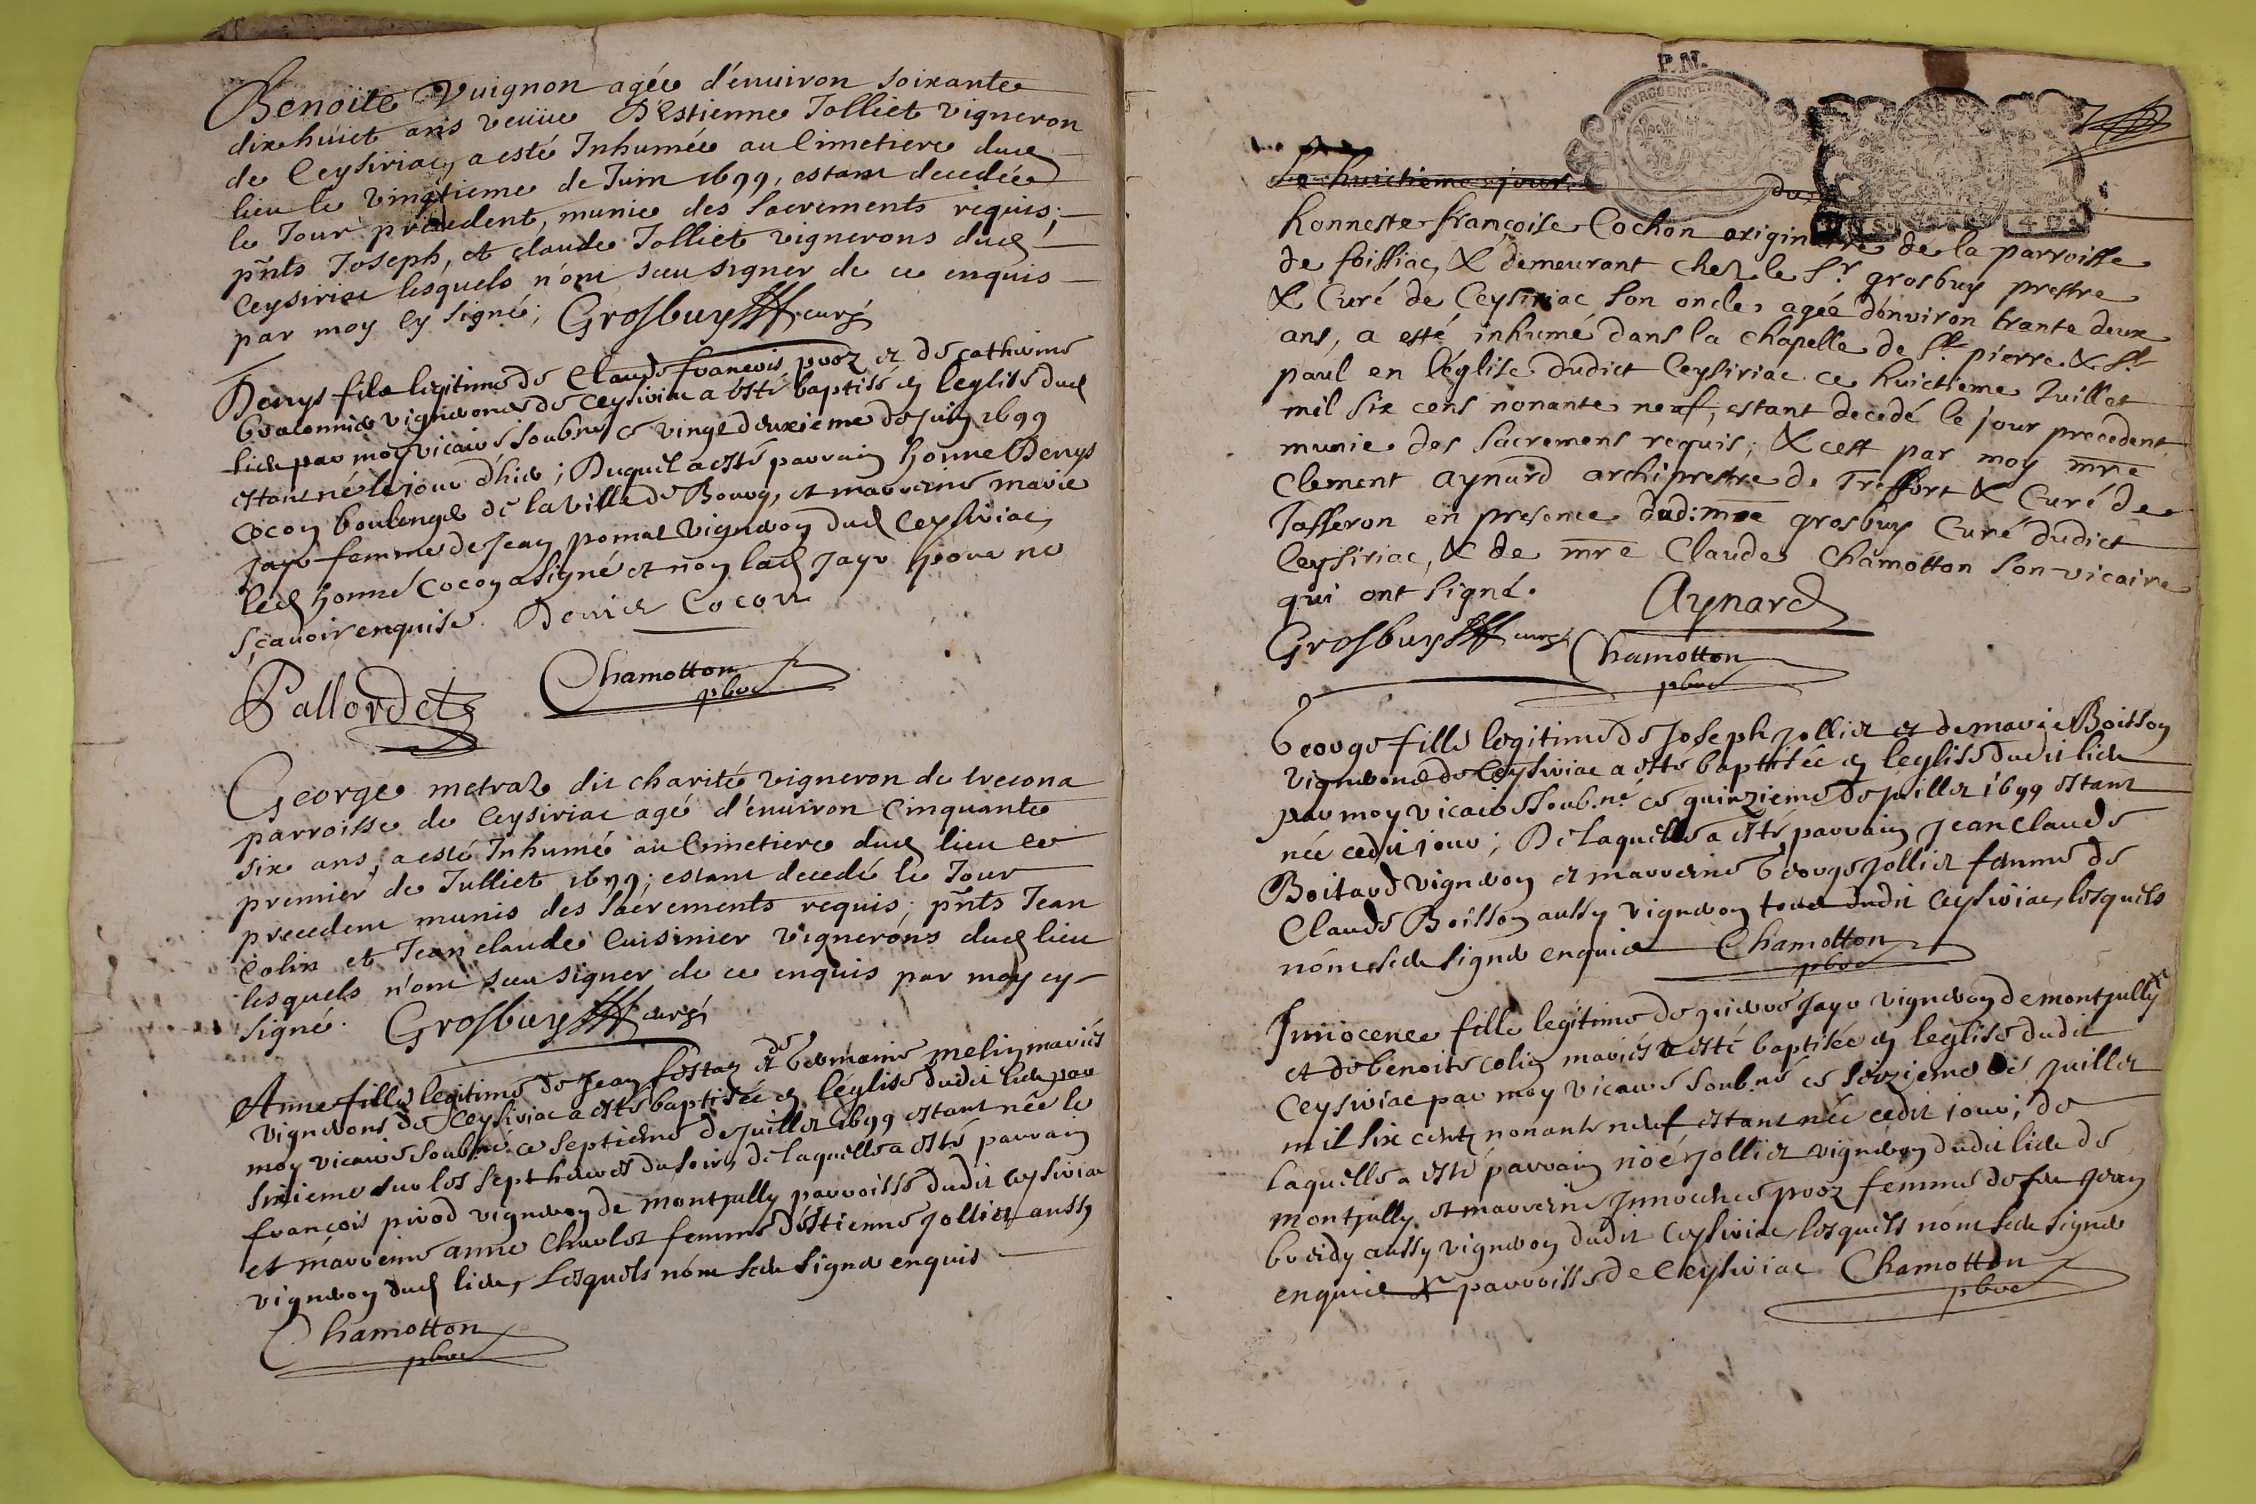 Benoite Vuignon agée d'enuiron soixante
dixhuict ans veuue D'Estienne Jolliet vigneron
de Ceysiriac, a esté Inhumée au Cimetiere dud
lieu le vingtieme de Juin 1699, estant decedée
le Jour precedent, munie des sacrements requis;
pñts Joseph, et claude Jolliet vignerons dud
Ceysiriac lesquels n'ont sceu signer de ce enquis
par moy cy signé; Grosbuy curé
Denys fils legitime de Claude francois proz et de catherine
braconnier vignerons de ceysiriac a esté baptisé en leglise dud
lieu par moy vicaire soubné ce vingt deuxieme de juin 1699
estant né le jour d'hier; Duquel a esté parrain honne Denys
Cocon boulenger de la ville de Bourg, et marreine marie
Jayr femme de Jean pomat vigneron dud Ceysiriac
led honne Cocon a signé et non lad Jayr pour ne
sçauoir enquise. Denis Cocon
Pallordet Chamotton
pbre
George metral dit charité vigneron de trecona
parroisse de Ceysiriac agé d'enuiron Cinquante
six ans, a esté Inhumé au Cimetiere dud lieu ce
premier de Julliet 1699; estant decedé le Jour
precedent munis des sacrements requis; pñts Jean
Colin et Jean claude Cuisinier vignerons dud lieu
lesquels n'ont sceu signer de ce enquis par moy cy
signé. Grosbuy curé
de
Anne fille legitime de Jean festaz et Germaine melin mariés
vignerons de Ceysiriac a esté baptisée en léglise dudit lieu par
moy vicaire soubné ce septieme de juillet 1699 estant née le
sixieme sur les sept heures du soir, de laquelle a esté parrain
françois pirod vigneron de montjully parroisse dudit Ceysiriac
et marreine anne Charlet femme d'éstienne Jolliet aussy
vigneron dud lieu, lesquels n'ont sceu signer enquis
Chamotton
pbre
P.N.
7
Le huictieme jour du
honneste françoise Cochon originerre de la parroisse
de foissiac, & demeurant chez le Sr grosbuy prestre
& Curé de Ceysiriac son oncle, agée d'environ trante deux
ans, a esté inhumé dans la chapelle de St pierre & St
paul en l'église dudict Ceysiriac ce huictieme Juillet
mil six cens nonante neuf, estant decedé le jour precedent
munie des sacremens requis, & cest par moy mre
Clement Aynard archiprestre de Treffort & Curé de
Jasseron en presence dud: mre grosbuy Curé dudict
Ceysiriac, & de mre Claude Chamotton son vicaire
qui ont signé. Aynard
Grosbuy curé Chamotton
pbre
George fille legitime de Joseph jolliet et de marie Boisson
vignerons de Ceysiriac a esté baptisée en leglise dudit lieu
par moy vicaire soub.né ce quinzieme de juillet 1699 estant
née cedit jour; De laquelle a esté parrain Jean Claude
Boitard vigneron et marreine George jolliet femme de
Claude Boisson aussy vigneron tous dudit Ceysiriac, lesquels
n'ont sceu signer enquis Chamotton
pbre
Innocence fille legitime de pierre Jayr vigneron de montjully
et de benoite colin mariés a esté baptisée en leglise dudit
Ceysiriac par moy vicaire soub.né ce seizieme de juillet
mil six cents nonante neuf estant née cedit jour; de
laquelle a esté parrain noé jolliet vigneron dudit lieu de
montjully et marreine Innocence proz femme de feu Jean
breidy aussy vigneron dudit Ceysiriac, lesquels n'ont sceu signer
enquis & parroisse de Ceysiriac Chamotton
pbre